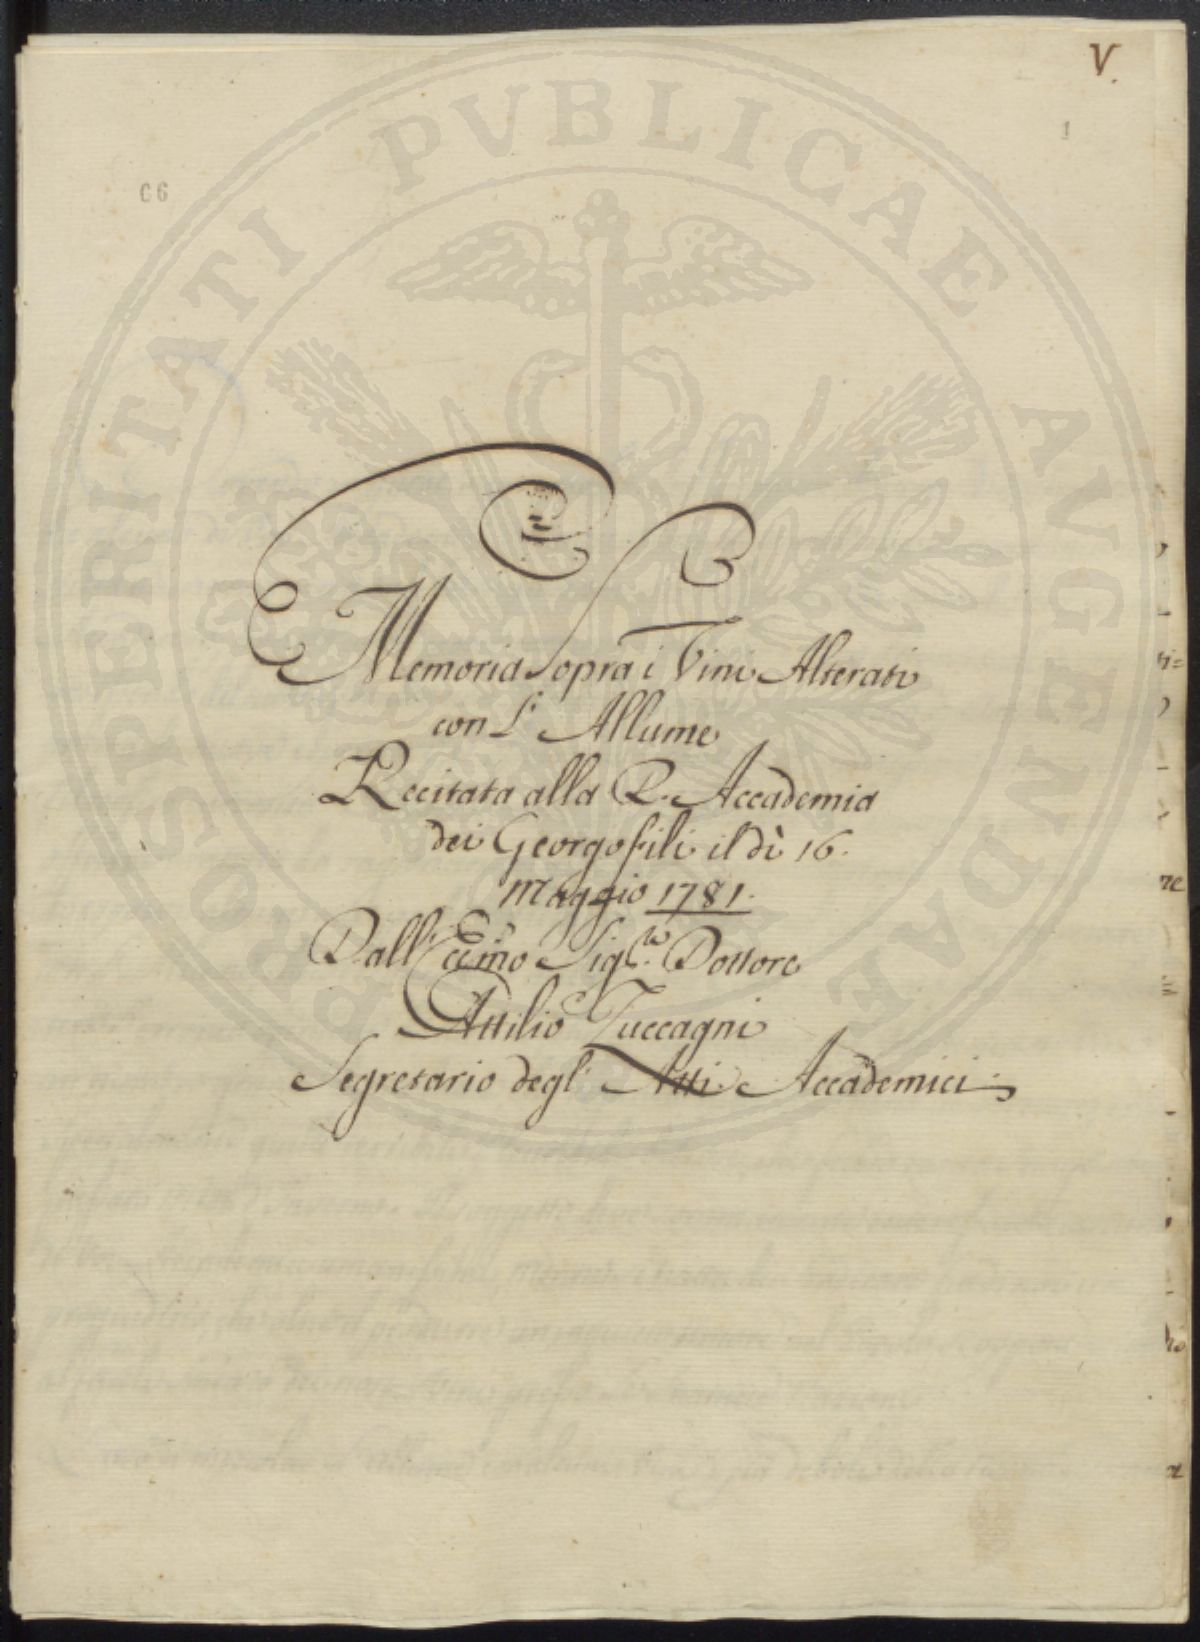 V.
1
C6
PROSPERITATI PVBLICAE AVGENDAE
Memoria Sopra i Vini Alterati
con L' Allume
Recitata alla R. Accademia
dei Georgofili il dì 16.
Maggio 1781.
Dall' Ecc̃mo Sig.re Dottore
Attilio Zuccagni
Segretario degl' Atti Accademici